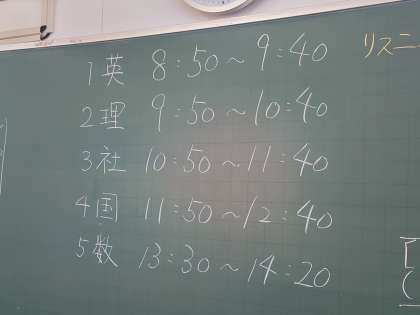 1 英 8:50〜9:40
2 理 9:50〜10:40
3 社 10:50〜11:40
4 国 11:50〜12:40
5 数 13:30〜14:20
リスニ